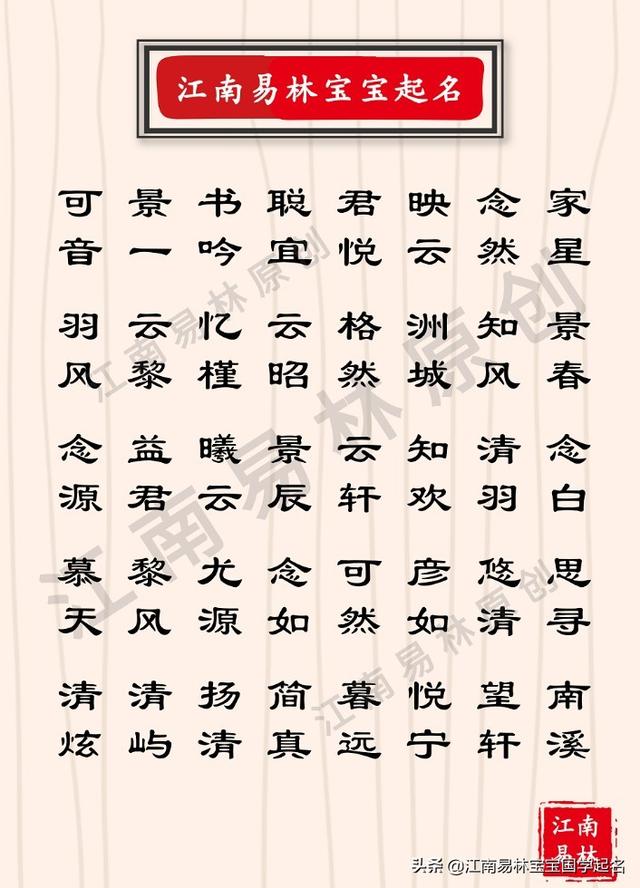 江南易林宝宝起名
可 景 书 聪 君 映 念 家
音 一 吟 宜 悦 云 然 星
羽 云 忆 云 格 洲 知 景
风 黎 槿 昭 然 城 风 春
念 益 曦 景 云 知 清 念
源 君 云 辰 轩 欢 羽 白
慕 黎 尤 念 可 彦 悠 思
天 风 源 如 然 如 清 寻
清 清 扬 简 暮 悦 望 南
炫 屿 清 真 远 宁 轩 溪
江南易林原创
江南易林原创
江南易林原创
江南
易林
头条 @江南易林宝宝国学起名